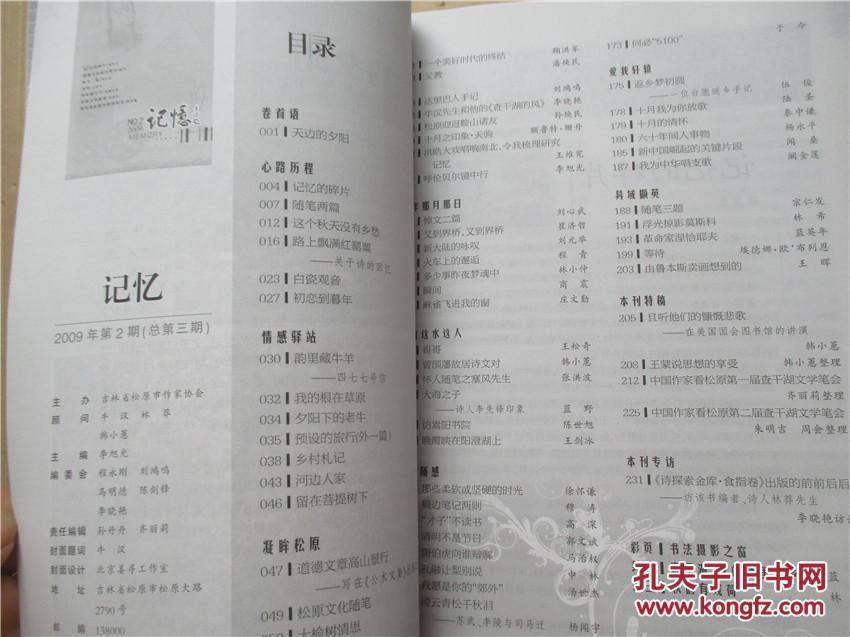 NO.2
2009
记憶
MEMORY
记忆
2009 年第 2 期(总第三期)
主 办 吉林省松原市作家协会
顾 问 牛 汉 林 莽
韩小蕙
主 编 李旭光
编委会 程永刚 刘鸿鸣
马明德 陈剑锋
李晓艳
责任编辑 孙丹丹 齐丽莉
封面题词 牛 汉
封面设计 北京姜寻工作室
地 址 吉林省松原市松原大路
2790 号
邮 编 138000
目录
卷首语
001 天边的夕阳
心路历程
004 记忆的碎片
007 随笔两篇
012 这个秋天没有乡愁
016 路上飘满红罂粟
——关于诗的回忆
023 白瓷观音
027 初恋到暮年
情感驿站
030 韵里藏牛羊
——四七七号信
032 我的根在草原
034 夕阳下的老牛
035 预设的旅行(外一篇)
038 乡村札记
043 河边人家
046 留在菩提树下
凝眸松原
047 道德文章高山景行
——写在《公木文集》
049 松原文化随笔
大榆树情思
一个美好时代的终结 鞠洪军
父教 潘焕民
达里巴人手记 刘鸿鸣
牛汉先生和他的《查干湖的风》 李晓艳
松原迎迓鞍山诸友 孙焕民
十月之印象·天晦 额鲁特·珊丹
洪皓大戏唱响南北，令我梳理研究
记忆 王维宪
呼伦贝尔镜中行 李旭光
年那月那日
悼文二篇 刘心武
又到界桥，又到界桥 崔济哲
新大陆的咏叹 刘元举
火车上的邂逅 程 青
多少事昨夜梦魂中 林小仲
瞬间 商 震
麻雀飞进我的窗 庄文勤
这水这人
哥哥 王松奇
曾国藩故居诗文对 韩小蕙
怀人随笔之塞风先生 张洪波
大海之子
——诗人李先锋印象 蓝 野
访嵩阳书院 陈世旭
晚霞映在阳澄湖上 王剑冰
随感
那些柔软或坚硬的时光 徐怀谦
稿边笔记两则 穆 涛
“才子”不读书 高 深
清明不是节日 郭文斌
唐伯虎向谁辩驳 马治权
孔融让梨别说 申 林
我愿是你的“郊外” 汤世杰
凌云青松千秋泪
——苏武、李陵与司马迁 杨闻宇
173 何必“5100” 于 今
爱我轩辕
175 返乡梦初圆
——一位台胞返乡手记 伍 俊
178 十月我为你放歌 陆 圣
179 十月的情怀 秦中谦
180 六十年间人事物 杨永平
185 新中国崛起的关键片段 闻 桑
187 我为中华唱支歌 阚金莲
异域撷英
188 随笔三题 宗仁发
191 浮光掠影莫斯科 林 希
193 革命家涅恰耶夫 蓝英年
199 等待 埃德娜·欧'布列恩
203 由鲁本斯卖画想到的 王 晖
本刊特稿
205 且听他们的慷慨悲歌
——在美国国会图书馆的讲演
韩小蕙
208 王蒙说思想的享受 韩小蕙整理
212 中国作家看松原第一届查干湖文学笔会
齐丽莉整理
225 中国作家看松原第二届查干湖文学笔会
朱明吉 周会整理
本刊专访
231 《诗探索金库·食指卷》出版的前前后后
——访该书编者、诗人林莽先生
李晓艳访谈
彩页 书法摄影之窗
孔夫子旧书网
www.kongfz.com